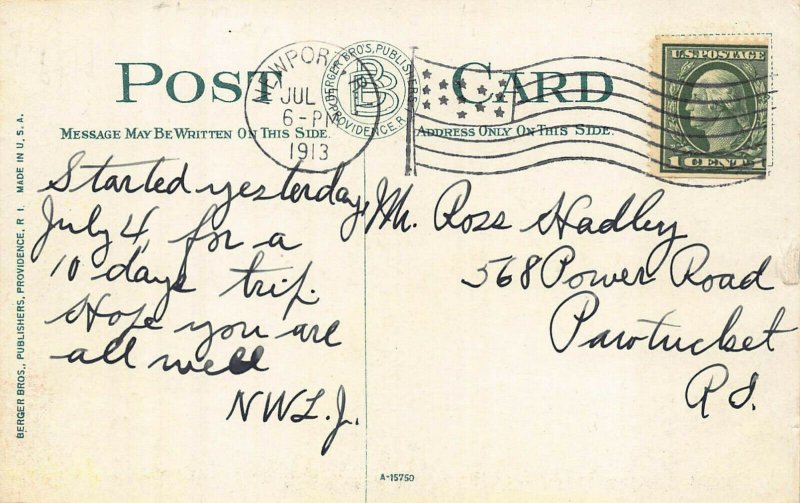 POST CARD
NEWPORT
JUL
6-PM
1913
BERGER BRO'S, PUBLISHERS
BB
PROVIDENCE, R.I.
U.S. POSTAGE
1 CENT 1
MESSAGE MAY BE WRITTEN ON THIS SIDE.
ADDRESS ONLY ON THIS SIDE.
BERGER BROS., PUBLISHERS, PROVIDENCE, R I. MADE IN U.S.A.
Started yesterday,
July 4, for a
10 days trip.
Hope you are
all well
N.W.L.J.
Mr. Ross Hadley
568 Power Road
Pawtucket
R.I.
A-15750